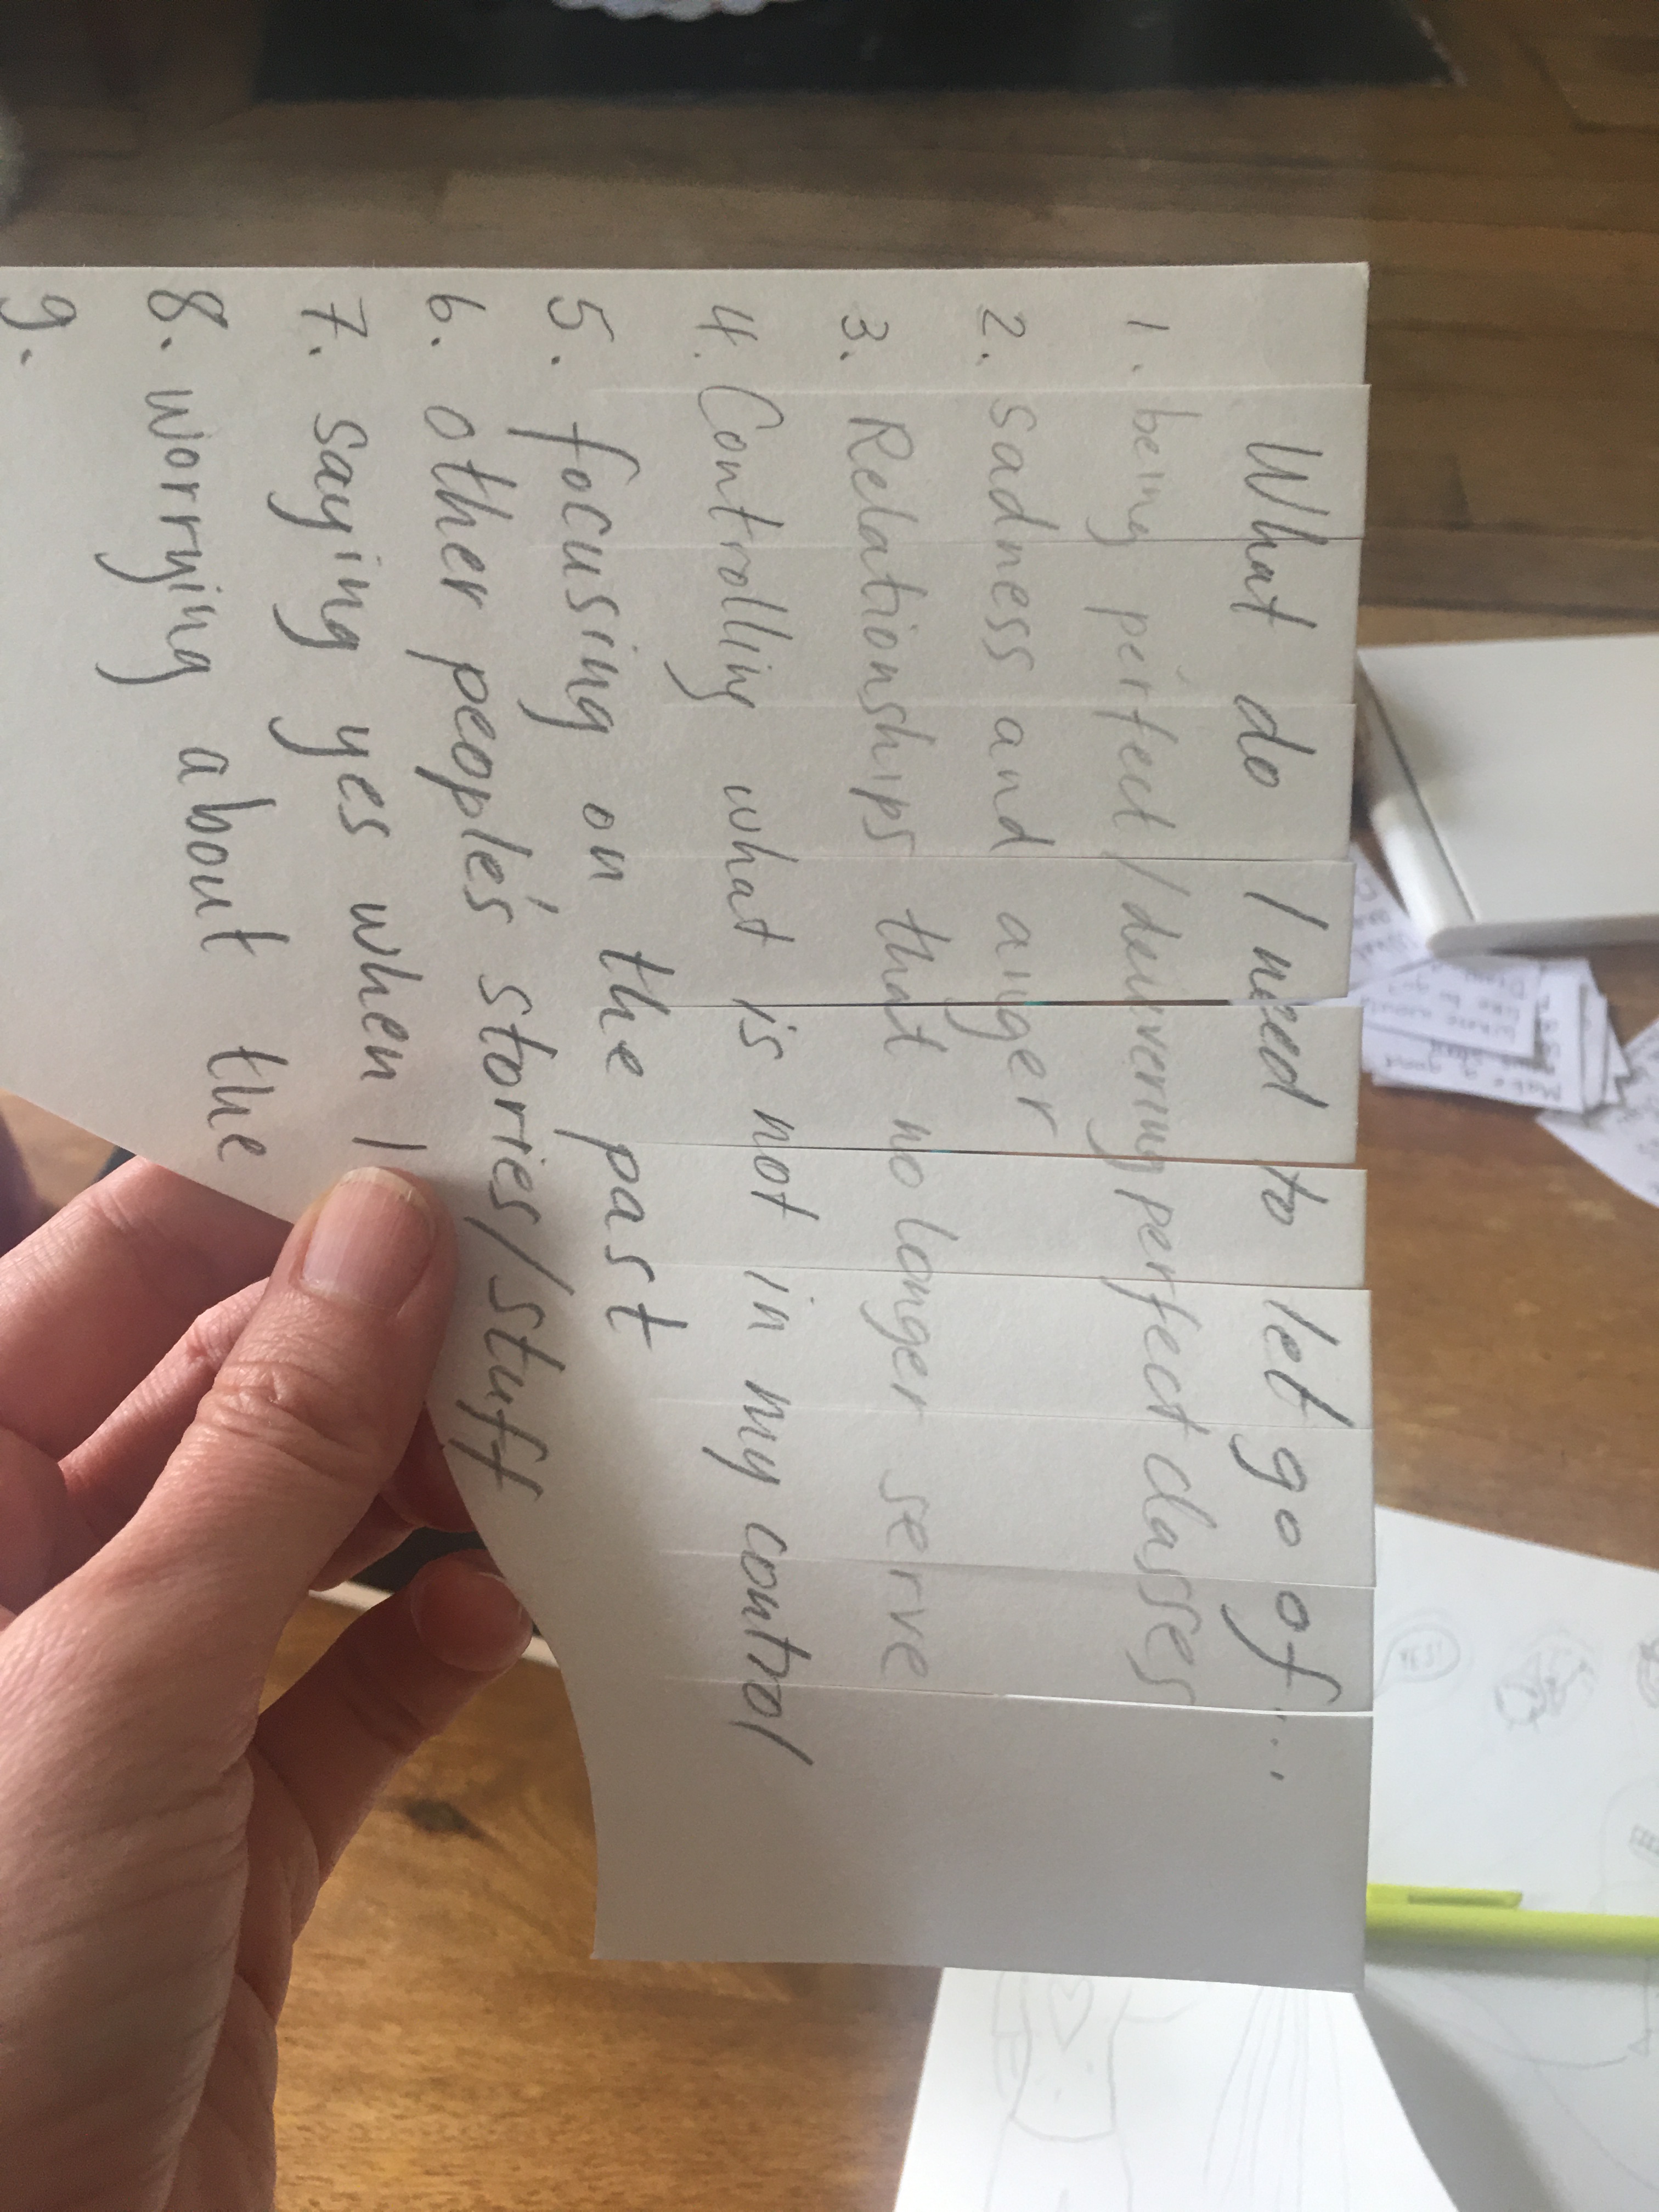 What do I need to let go of...
1. being perfect / delivering perfect classes
2. sadness and anger
3. Relationships that no longer serve
4. Controlling what is not in my control
5. focusing on the past
6. other people's stories/stuff
7. saying yes when I
8. worrying about the
9.
YES!